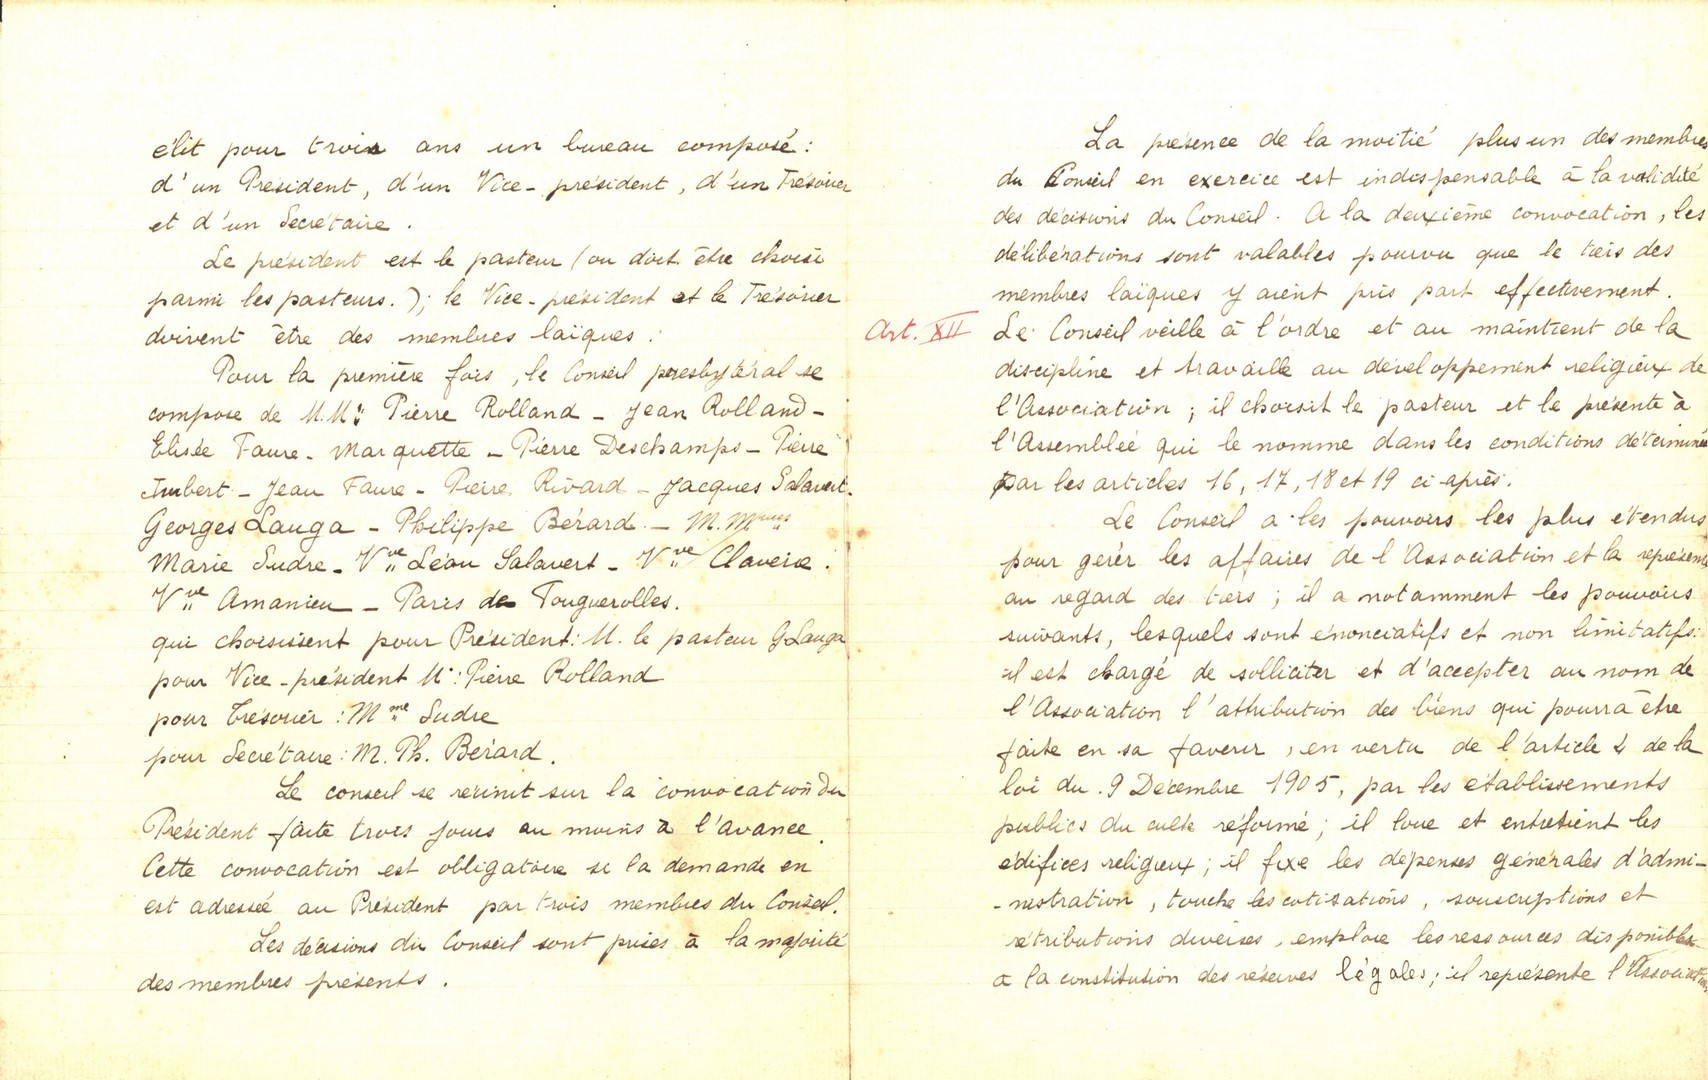 élit pour trois ans un bureau composé :
d'un Président, d'un Vice-président, d'un Trésorier
et d'un Secrétaire .
Le président est le pasteur (ou doit être choisi
parmi les pasteurs.); le Vice-président et le Trésorier
doivent être des membres laïques .
Pour la première fois, le Conseil presbytéral se
compose de M.M: Pierre Rolland - Jean Rolland -
Elisée Faure - Marquette - Pierre Deschamps - Pierre
Imbert - Jean Faure - Pierre Rivard - Jacques Salavert.
Georges Lauga - Philippe Bérard - M. Mmes
Marie Sudre - Vve Léon Salavert - Vve Claverie.
Vve Amanieu - Paris de Touguerolles.
qui choisissent pour Président: M. le pasteur G Lauga
pour Vice-président M: Pierre Rolland
pour Trésorier : Mme Sudre
pour Secrétaire : M. Ph. Bérard.
Le conseil se réunit sur la convocation du
Président faite trois jours au moins à l'avance.
Cette convocation est obligatoire si la demande en
est adressée au Président par trois membres du Conseil.
Les décisions du Conseil sont prises à la majorité
des membres présents .
La présence de la moitié plus un des membres
du Conseil en exercice est indispensable à la validité
des décisions du Conseil . A la deuxième convocation, les
délibérations sont valables pourvu que le tiers des
membres laïques y aient pris part effectivement .
Art. XII Le Conseil veille à l'ordre et au maintient de la
discipline et travaille au développement religieux de
l'Association ; il choisit le pasteur et le présente à
l'Assemblée qui le nomme dans les conditions déterminées
par les articles 16, 17, 18 et 19 ci-après.
Le Conseil a les pouvoirs les plus étendus
pour gérer les affaires de l'Association et la représente
au regard des tiers ; il a notamment les pouvoirs
suivants, lesquels sont énonciatifs et non limitatifs:
il est chargé de solliciter et d'accepter au nom de
l'Association l'attribution des biens qui pourra être
faite en sa faveur, en vertu de l'article 4 de la
loi du 9 Décembre 1905, par les établissements
publics du culte réformé ; il loue et entretient les
édifices religieux ; il fixe les dépenses générales d'admi-
-nistration, touche les cotisations, souscriptions et
rétributions diverses, emploie les ressources disponibles
à la constitution des réserves légales; il représente l'Association